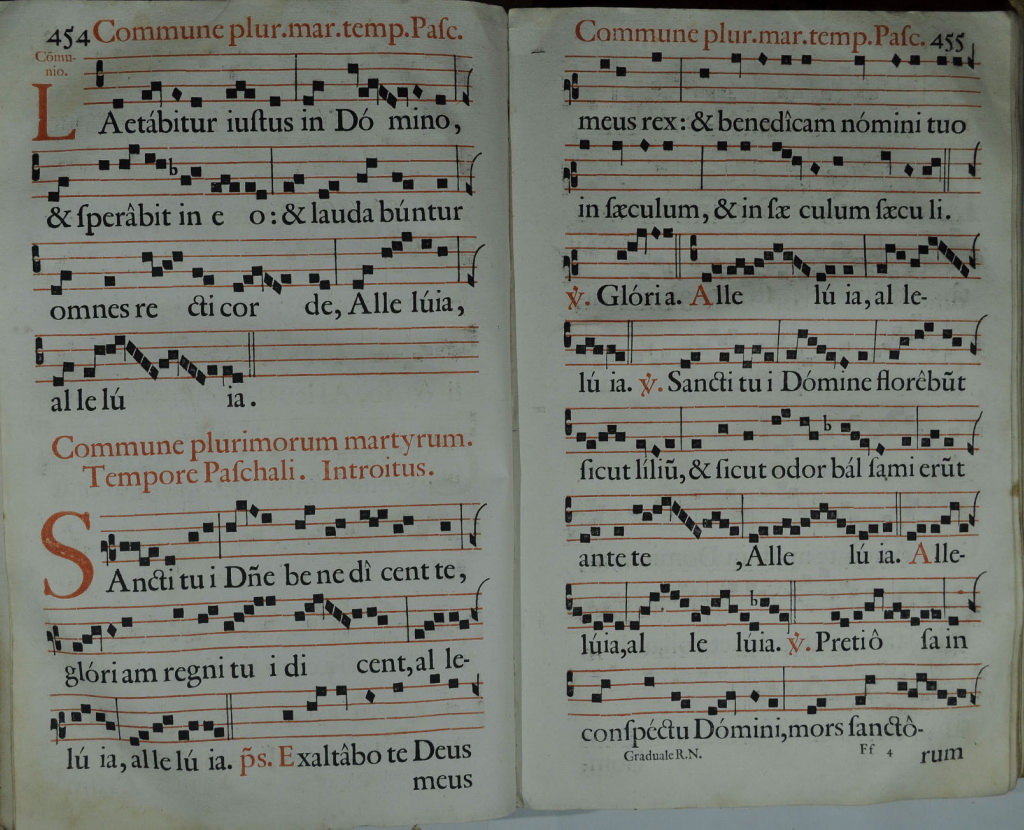 454 Commune plur.mar.temp.Paſc.
Cōmu-
nio.
LAetábitur iuſtus in Dó mino,
& ſperâbit in e o: & lauda búntur
omnes re cti cor de, Alle lúia,
al le lú ia.
Commune plurimorum martyrum.
Tempore Paſchali. Introitus.
SAncti tu i Dñe be ne dî cent te,
glóri am regni tu i di cent, al le-
lú ia, alle lú ia. p̄s. Exaltâbo te Deus
meus
Commune plur.mar.temp.Paſc. 455
meus rex: & benedîcam nómini tuo
in ſæculum, & in ſæ culum ſæcu li.
℣. Glóri a. Alle lú ia, al le-
lú ia. ℣. Sancti tu i Dómine florêbūt
ſicut líliū, & ſicut odor bál ſami erūt
ante te , Alle lú ia. Alle-
lúia, al le lúia. ℣. Pretiô ſa in
conſpéctu Dómini, mors ſanctô-
Graduale R.N. Ff 4 rum